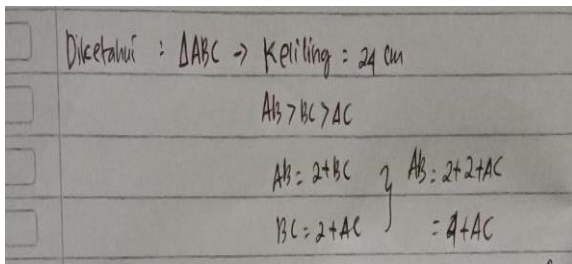 Diketahui : ΔABC → Keliling = 24 cm
AB > BC > AC
AB = 2+BC } AB = 2+2+AC
BC = 2+AC = 4+AC